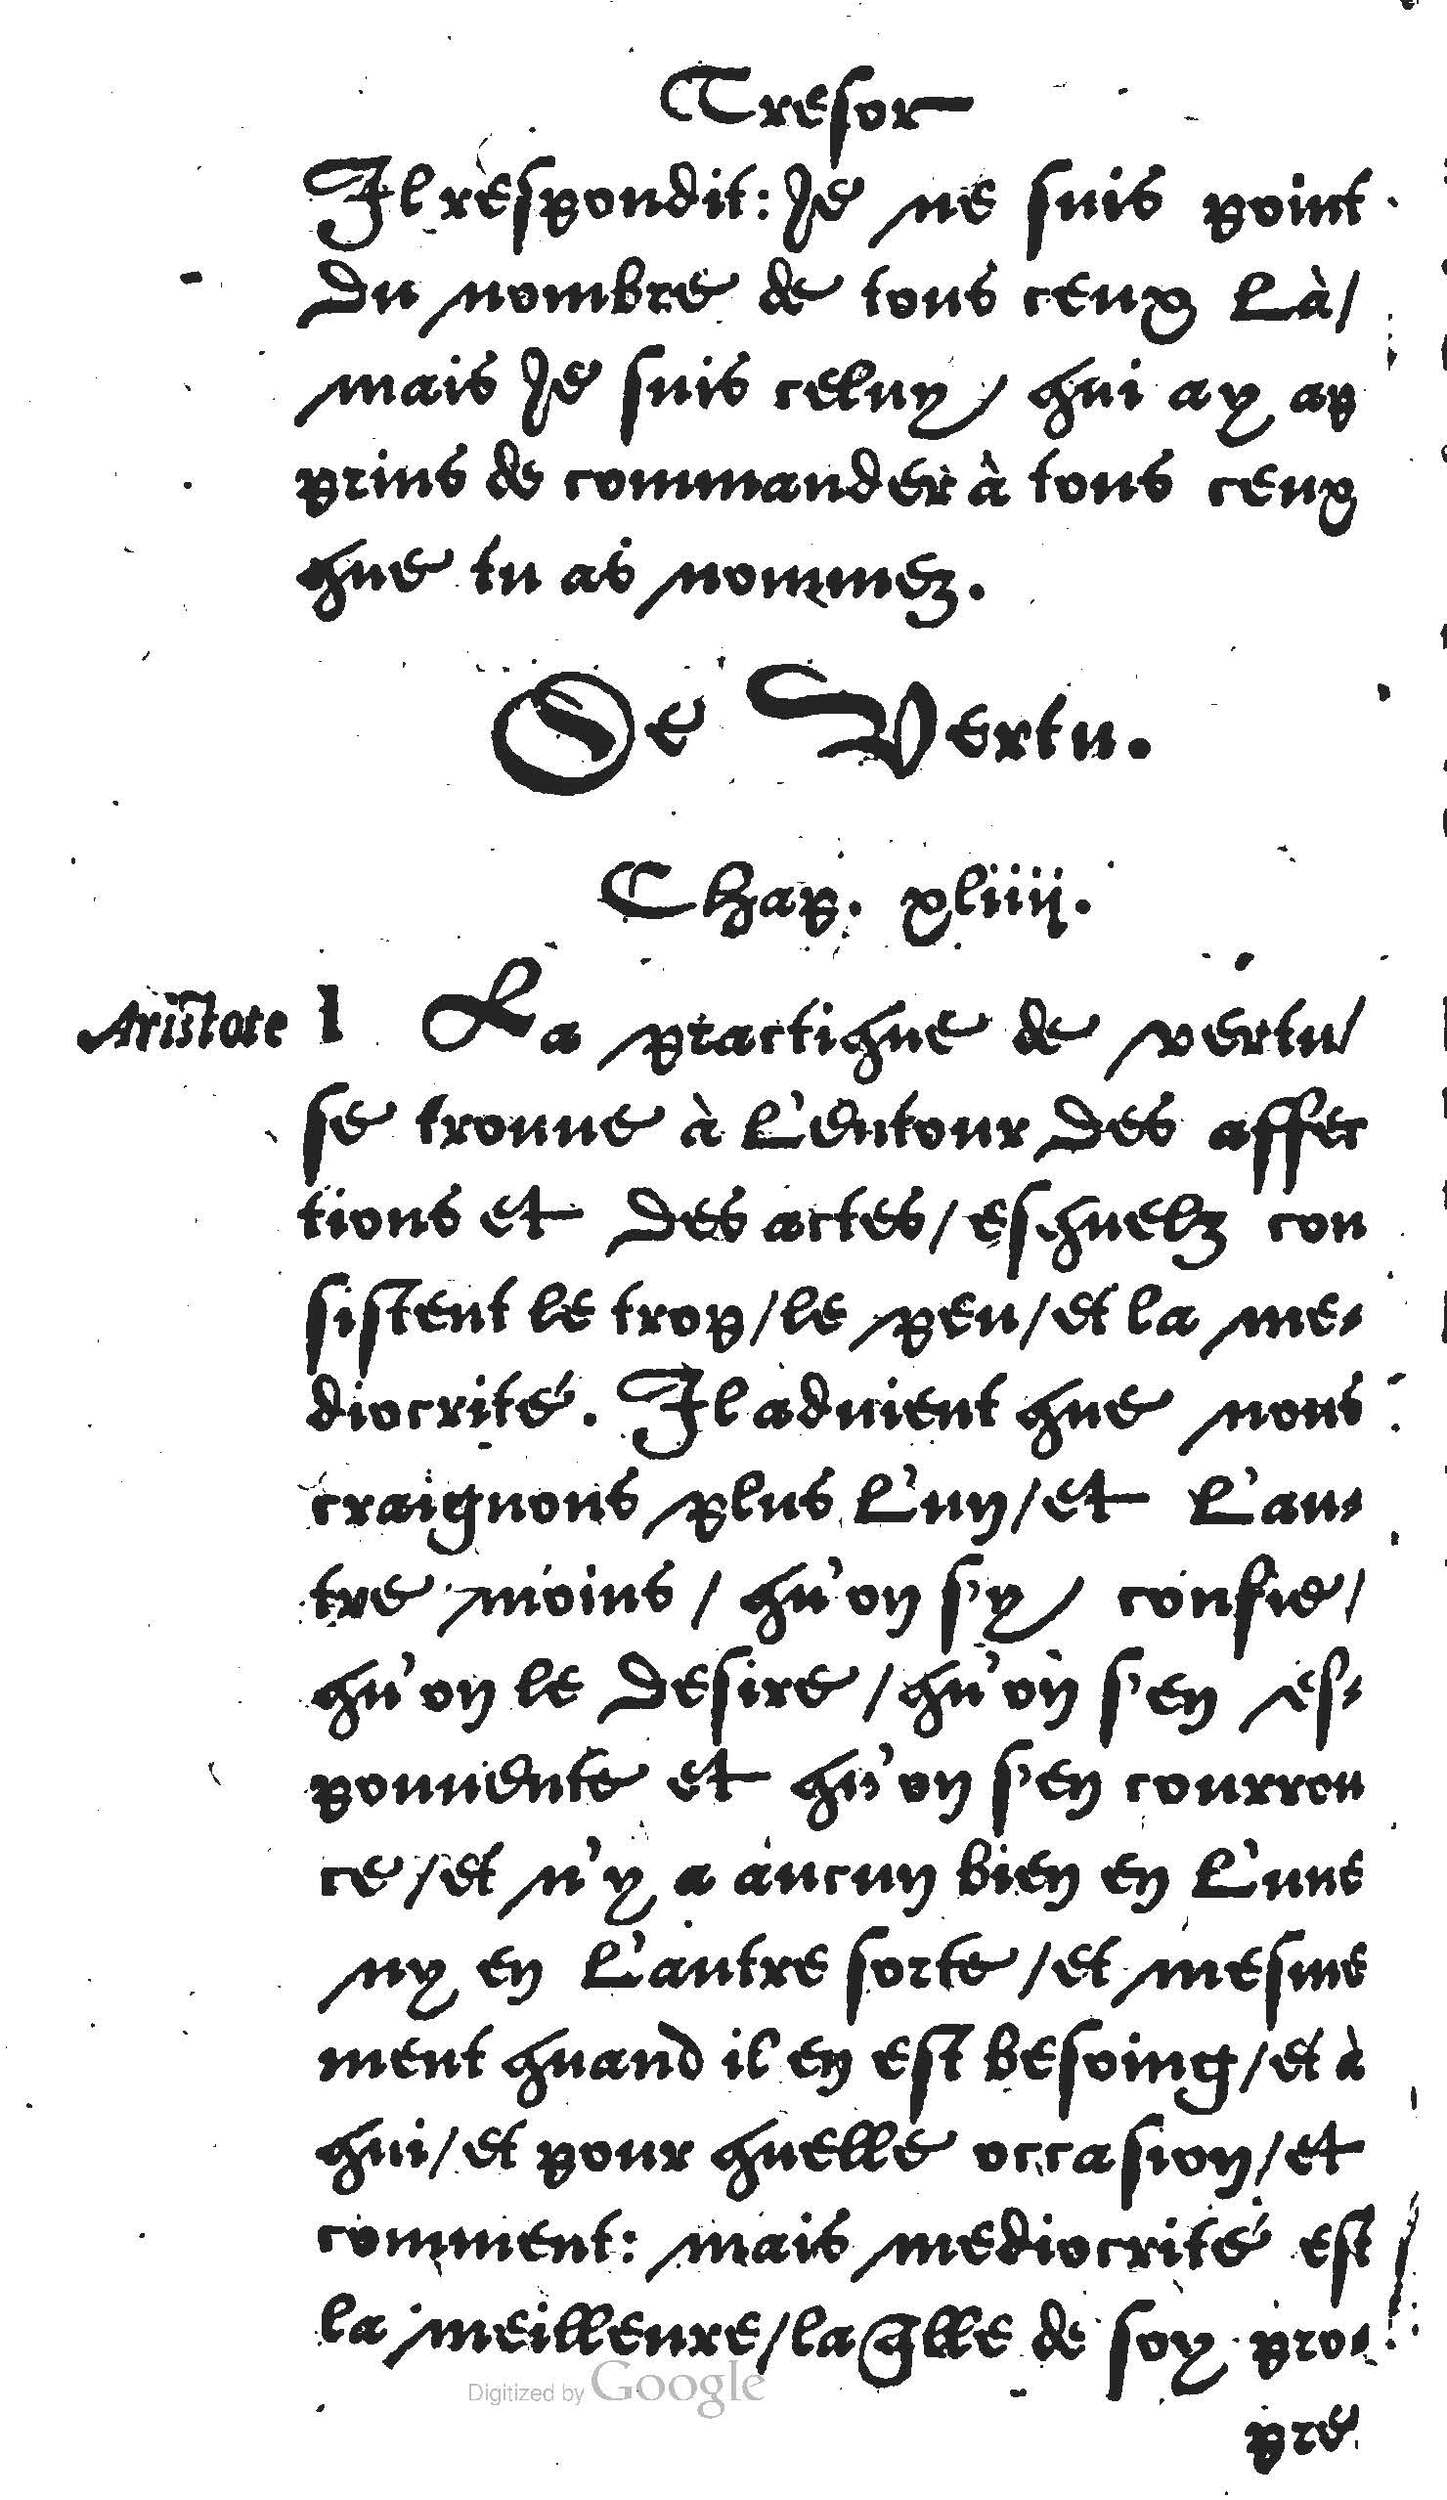 Tresor
Il respondit: Je ne suis point
du nombre de tous ceux là/
mais Je suis celuy/ qui ay ap
prins de commander à tous ceux
que tu as nommez.
De Vertu.
Chap. xliiij.
Aristote 1 La practique de vertu/
se trouue à l'entour des affec
tions et des actes/esquelz con
sistent le trop/le peu/et la me-
diocrité. Il aduient que nous
craignons plus l'un/et l'au-
tre moins/qu'on s'y confie/
qu'on le desire/qu'on s'en es-
pouuente et qu'on s'en courrou
ce/et n'y a aucun bien en l'une
ny en l'autre sorte/et mesme
ment quand il en est besoing/et à
qui/et pour quelle occasion/et
comment: mais mediocrité est
la meilleure/laq̃lle de soy pro-
Digitized by Google
pre